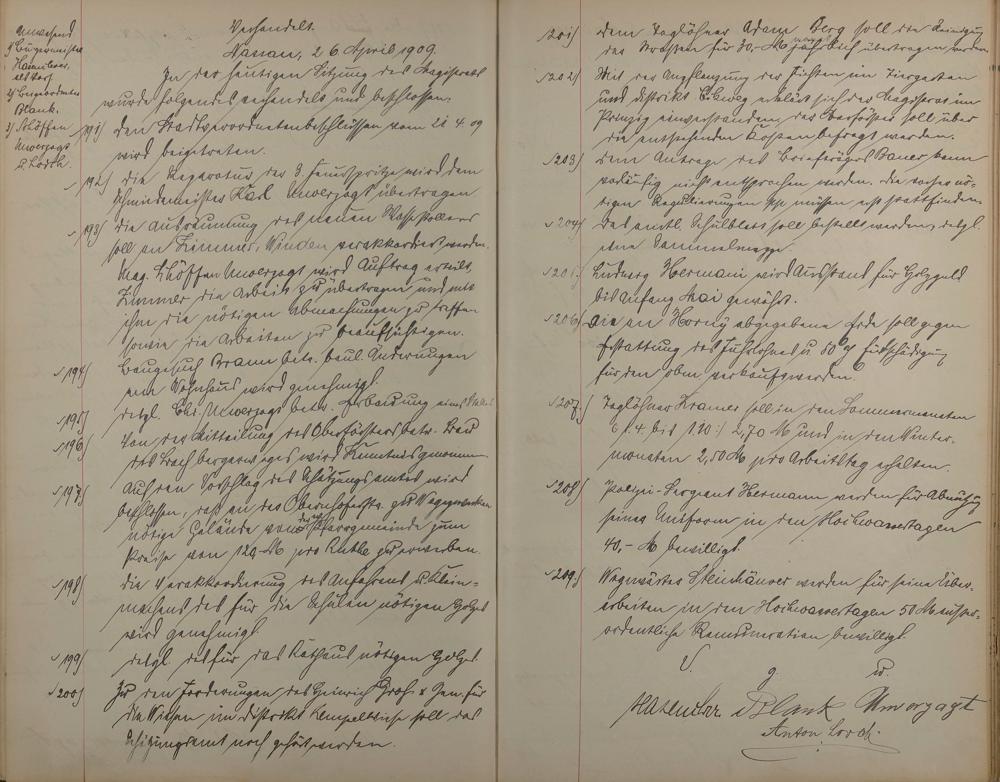 Anwesend
1) Bürgermeister
Hasenclever,
als Vors.
2) Beigeordneter
Blank.
3) Schöffen
Unverzagt
u. Lorch.
Verhandelt.
Nassau, 26 April 1909.
In der heutigen Sitzung des Magistrats
wurde folgendes verhandelt und beschlossen:
191) den Stadtverordnetenbeschlüssen vom 21.4.09
wird beigetreten.
192) die Reparatur der 3. Feuerspritze wird dem
Schmiedemeister Karl Unverzagt übertragen
193) die Ausräumung des neuen
soll an Zimmer, Winden verakkordiert werden.
Mag. Schöffen Unverzagt wird Auftrag erteilt,
Zimmer die Arbeit zu übertragen und mit
ihm die nötigen Abmachungen zu treffen
sowie die Arbeiten zu beaufsichtigen.
194) Baugesuch Braun betr. baul. Änderungen
am Wohnhaus wird genehmigt.
195) desgl. Unverzagt betr. Erbauung eines Stalles
196) Von der Mitteilung des Oberförsters betr. Bau
des wird Kenntnis genommen.
197) Auf den Vorschlag des Schätzungsamtes wird
beschlossen, das an der Obernhoferstr. zu
nötige Gelände von der Pfarrgemeinde zum
Preise von 120 M pro Rute zu erwerben.
198) die Verakkordierung des Anfahrens u. Klein-
machens des für die Schulen nötigen Holzes
wird genehmigt.
199) desgl. des für das Rathaus nötigen Holzes.
200) Zu den Forderungen des Heinrich Grof & Gen. für
die Wiesen im Distrikt soll das
Schätzungsamt noch gehört werden.
201) dem Taglöhner Adam Berg soll die Reinigung
der Strassen für 30,- M jährlich übertragen werden
202) Mit der Anpflanzung der Fichten im Tiergarten
und Distrikt erklärt sich der Magistrat im
Prinzip einverstanden, der Oberförster soll über
die entstehenden Kosten befragt werden.
203) dem Antrage des Briefträgers Bauer kann
vorläufig nicht entsprochen werden. die vorher nö-
tigen Regulierungen müssen erst stattfinden.
204) das amtl. Schulblatt soll bestellt werden, desgl.
eine Sammelmappe.
205) Ludwig Hermani wird Ausstand für Holzgeld
bis Anfang Mai gewährt.
206) die an Horny abgegebene Erde soll gegen
Erstattung des Fuhrlohnes u. 50 Entschädigung
für den verkauft werden.
207) Taglöhner Kramer soll in den Sommermonaten
(1.4. bis 1.10:) 2,70 M und in den Winter-
monaten 2,50 M pro Arbeitstag erhalten.
208) Polizei-Sergeant Hermann werden für Abnutzung
seiner Uniform in den Hochwassertagen
40,- M bewilligt.
209) Wegewärter Steinhäuser werden für seine Über-
arbeiten in den Hochwassertagen 50 M ausser-
ordentliche Remuneration bewilligt.
V. g. u.
Hasenclever Blank Unverzagt
Anton Lorch.